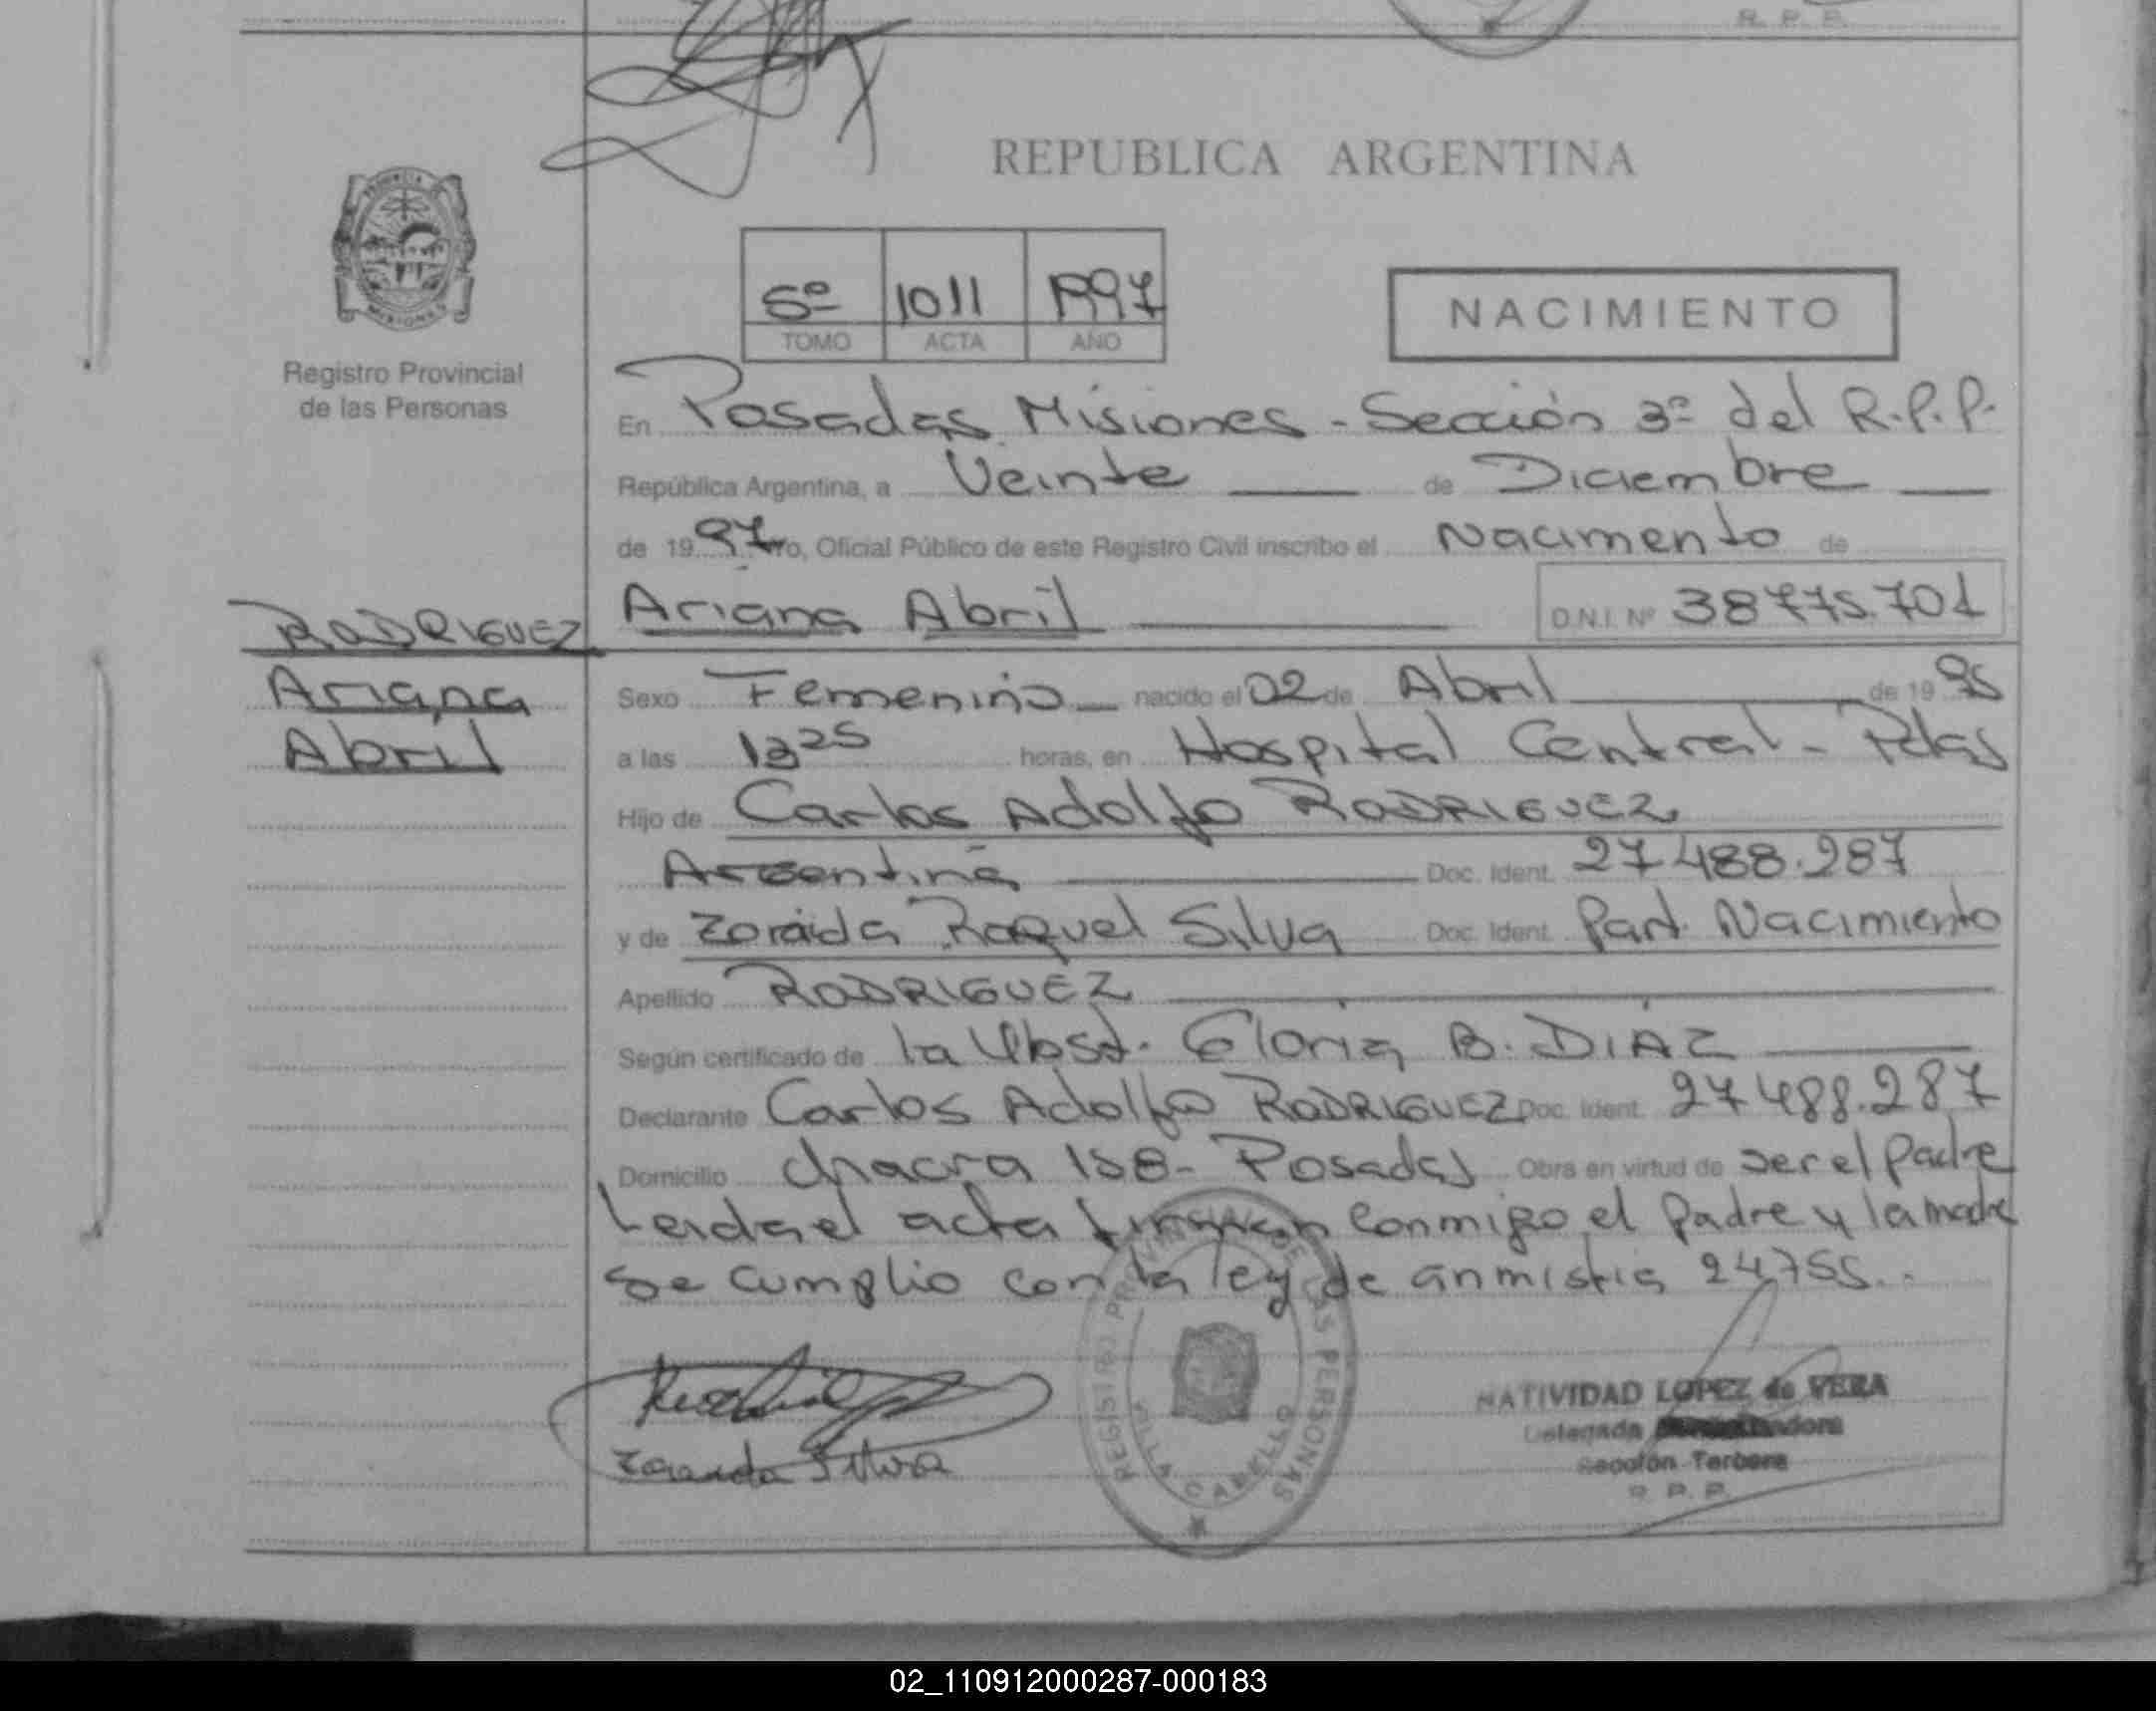 R. P. P.
REPUBLICA ARGENTINA
PROVINCIA DE MISIONES
Registro Provincial
de las Personas
5º 1011 1997
TOMO ACTA AÑO
NACIMIENTO
En Posadas Misiones - Sección 3º del R.P.P.
República Argentina, a Veinte de Diciembre
de 1997 Yo, Oficial Público de este Registro Civil inscribo el Nacimento de
Ariana Abril D.N.I. Nº 38775.701
RODRIGUEZ
Ariana
Abril
Sexo Femenino nacido el 02 de Abril de 1995
a las horas, en Hospital Central - Pdas
Hijo de Carlos Adolfo RODRIGUEZ
Argentina Doc. Ident. 27488.287
y de Zoraida Raquel Silva Doc. Ident. Part. Nacimiento
Apellido RODRIGUEZ
Según certificado de la Obst. Gloria B. DIAZ
Declarante Carlos Adolfo RODRIGUEZ Doc. Ident. 27488.287
Domicilio chacra 158 - Posadas Obra en virtud de ser el padre
Leida el acta firman conmigo el padre y la madre
se cumplio con la ley de anmistia 24755..
Zoraida Silva
REGISTRO PROVINCIAL DE LAS PERSONAS
VILLA CABELLO
NATIVIDAD LOPEZ de VERA
Delegada
Sección Tercera
R. P. P.
02_110912000287-000183